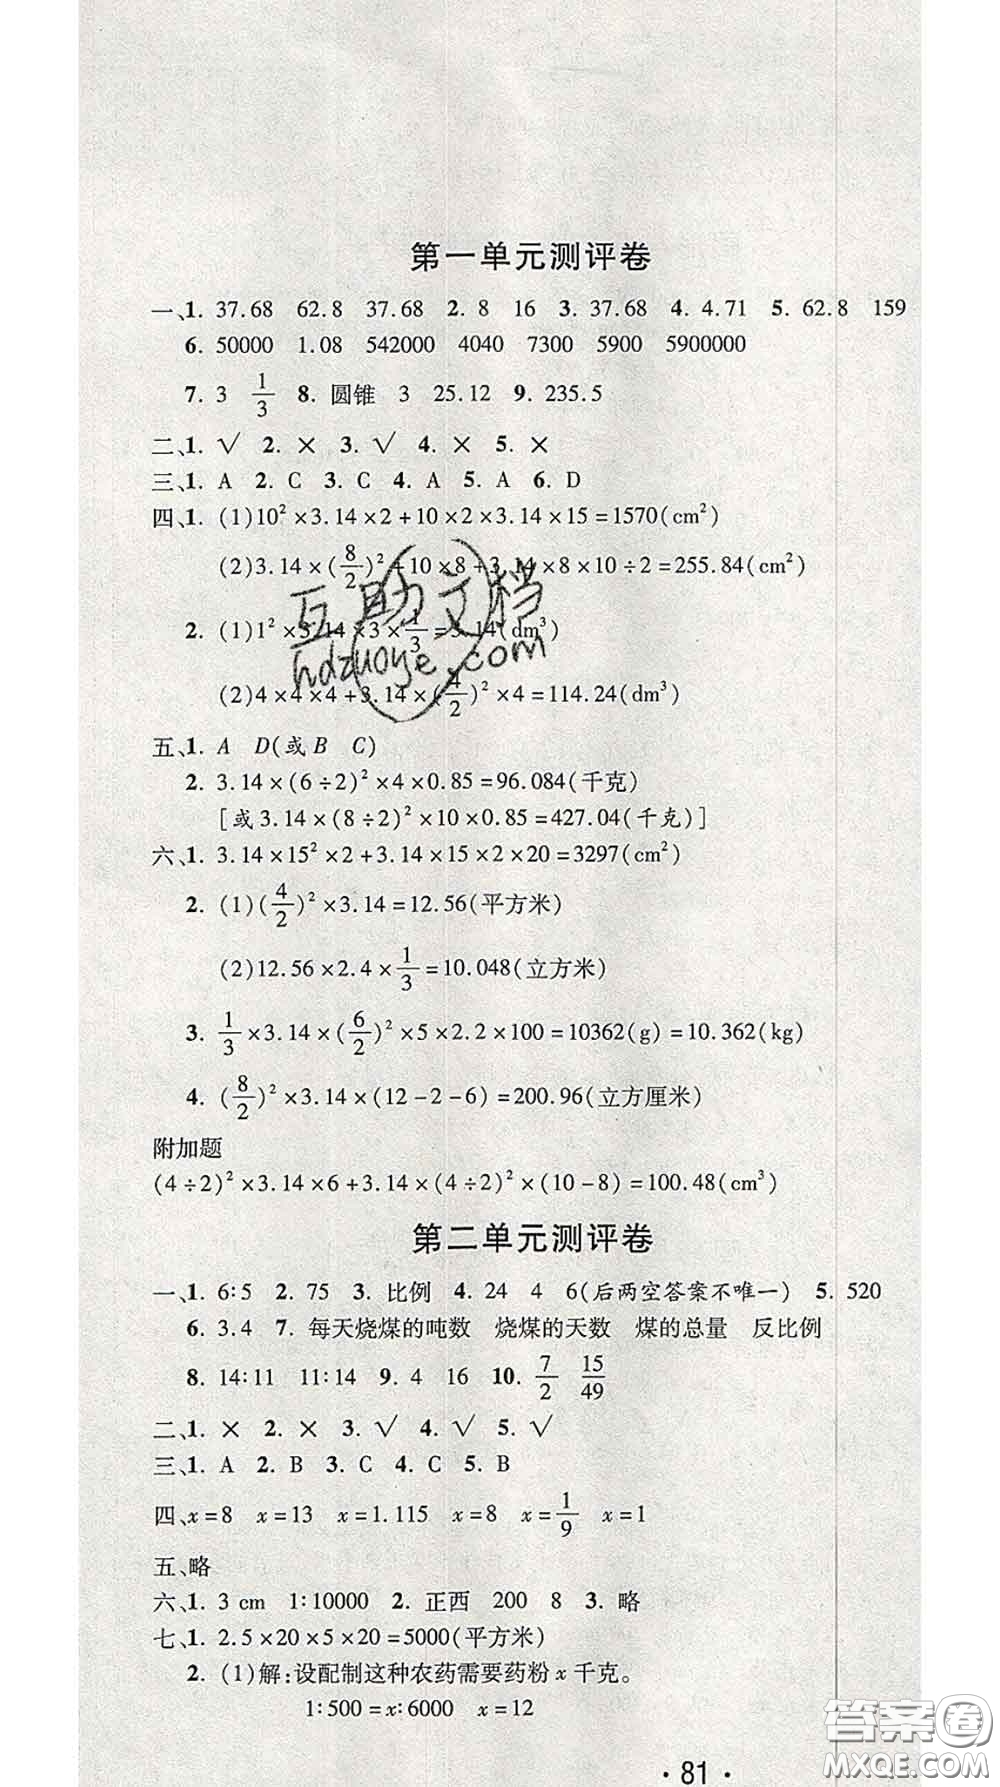 第一单元测评卷
一、1. 37.68 62.8 37.68 2. 8 16 3. 37.68 4. 4.71 5. 62.8 159
6. 50000 1.08 542000 4040 7300 5900 5900000
7. 3 1/3 8. 圆锥 3 25.12 9. 235.5
二、1. √ 2. × 3. √ 4. × 5. ×
三、1. A 2. C 3. C 4. A 5. A 6. D
四、1. (1)10²×3.14×2+10×2×3.14×15=1570(cm²)
(2)3.14×(8/2)²+10×8+3.14×8×10÷2=255.84(cm²)
2. (1)1²×3.14×3×1/3=3.14(dm³)
(2)4×4×4+3.14×(4/2)²×4=114.24(dm³)
互助文档
hdzuoye.com
五、1. A D(或B C)
2. 3.14×(6÷2)²×4×0.85=96.084(千克)
[或3.14×(8÷2)²×10×0.85=427.04(千克)]
六、1. 3.14×15²×2+3.14×15×2×20=3297(cm²)
2. (1)(4/2)²×3.14=12.56(平方米)
(2)12.56×2.4×1/3=10.048(立方米)
3. 1/3×3.14×(6/2)²×5×2.2×100=10362(g)=10.362(kg)
4. (8/2)²×3.14×(12-2-6)=200.96(立方厘米)
附加题
(4÷2)²×3.14×6+3.14×(4÷2)²×(10-8)=100.48(cm³)
第二单元测评卷
一、1. 6:5 2. 75 3. 比例 4. 24 4 6(后两空答案不唯一) 5. 520
6. 3.4 7. 每天烧煤的吨数 烧煤的天数 煤的总量 反比例
8. 14:11 11:14 9. 4 16 10. 7/2 15/49
二、1. × 2. × 3. √ 4. √ 5. √
三、1. A 2. B 3. C 4. C 5. B
四、x=8 x=13 x=1.115 x=8 x=1/9 x=1
五、略
六、1. 3 cm 1:10000 2. 正西 200 8 3. 略
七、1. 2.5×20×5×20=5000(平方米)
2. (1)解:设配制这种农药需要药粉x千克。
1:500=x:6000 x=12
答案卷
MXQE.COM
· 81 ·